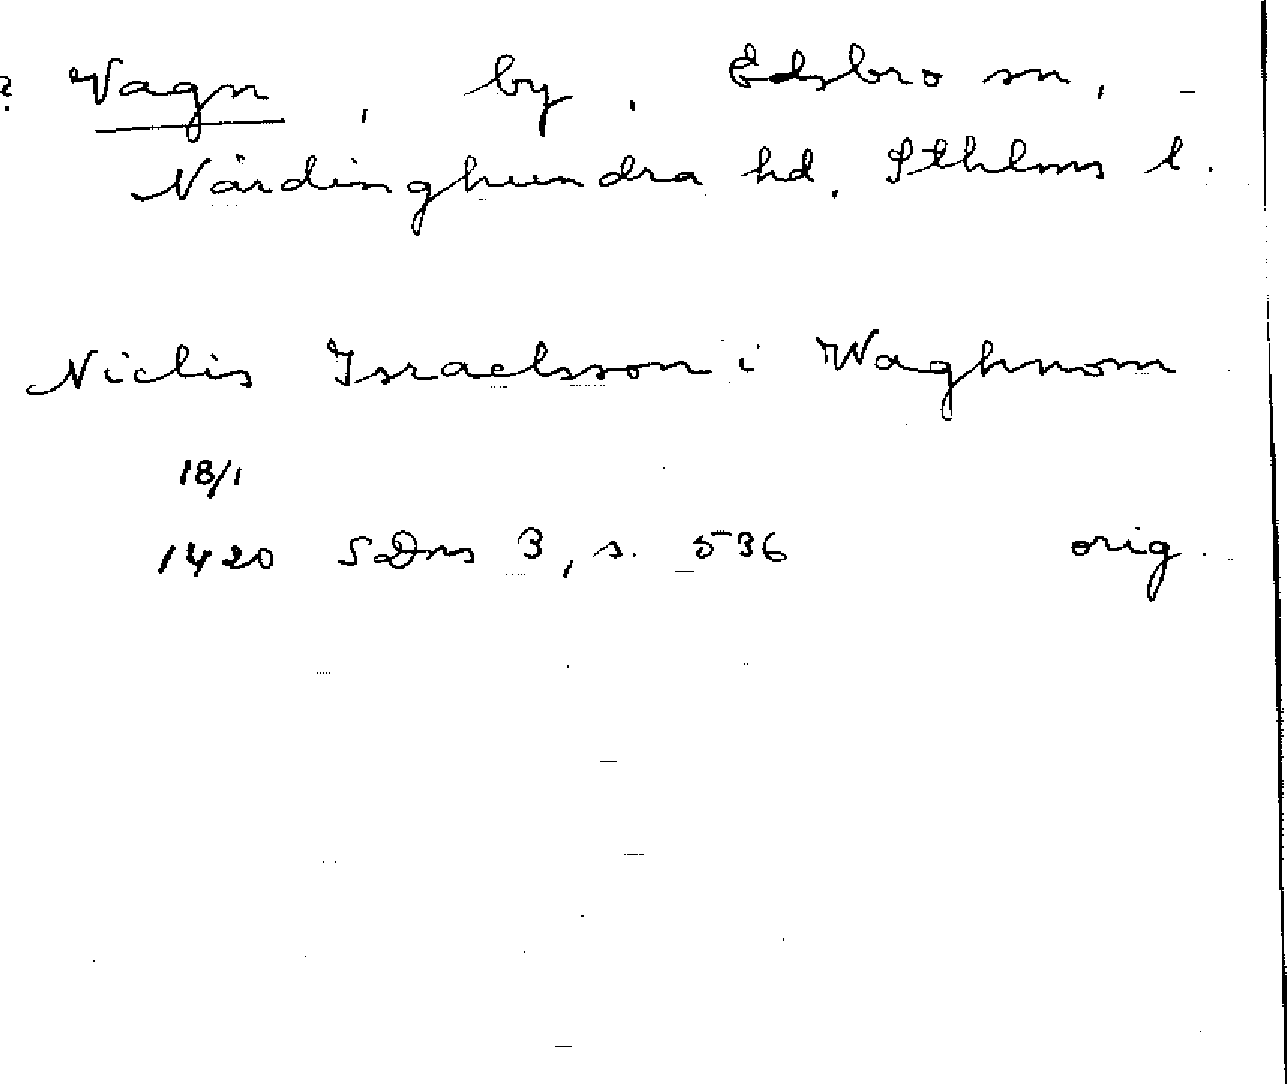 ? Vagn, by, Edsbro sn,
Närdinghundra hd, Sthlms l.
Niclis Israelsson i Waghnom
18/1
1420 SDns 3, s. 536 orig.